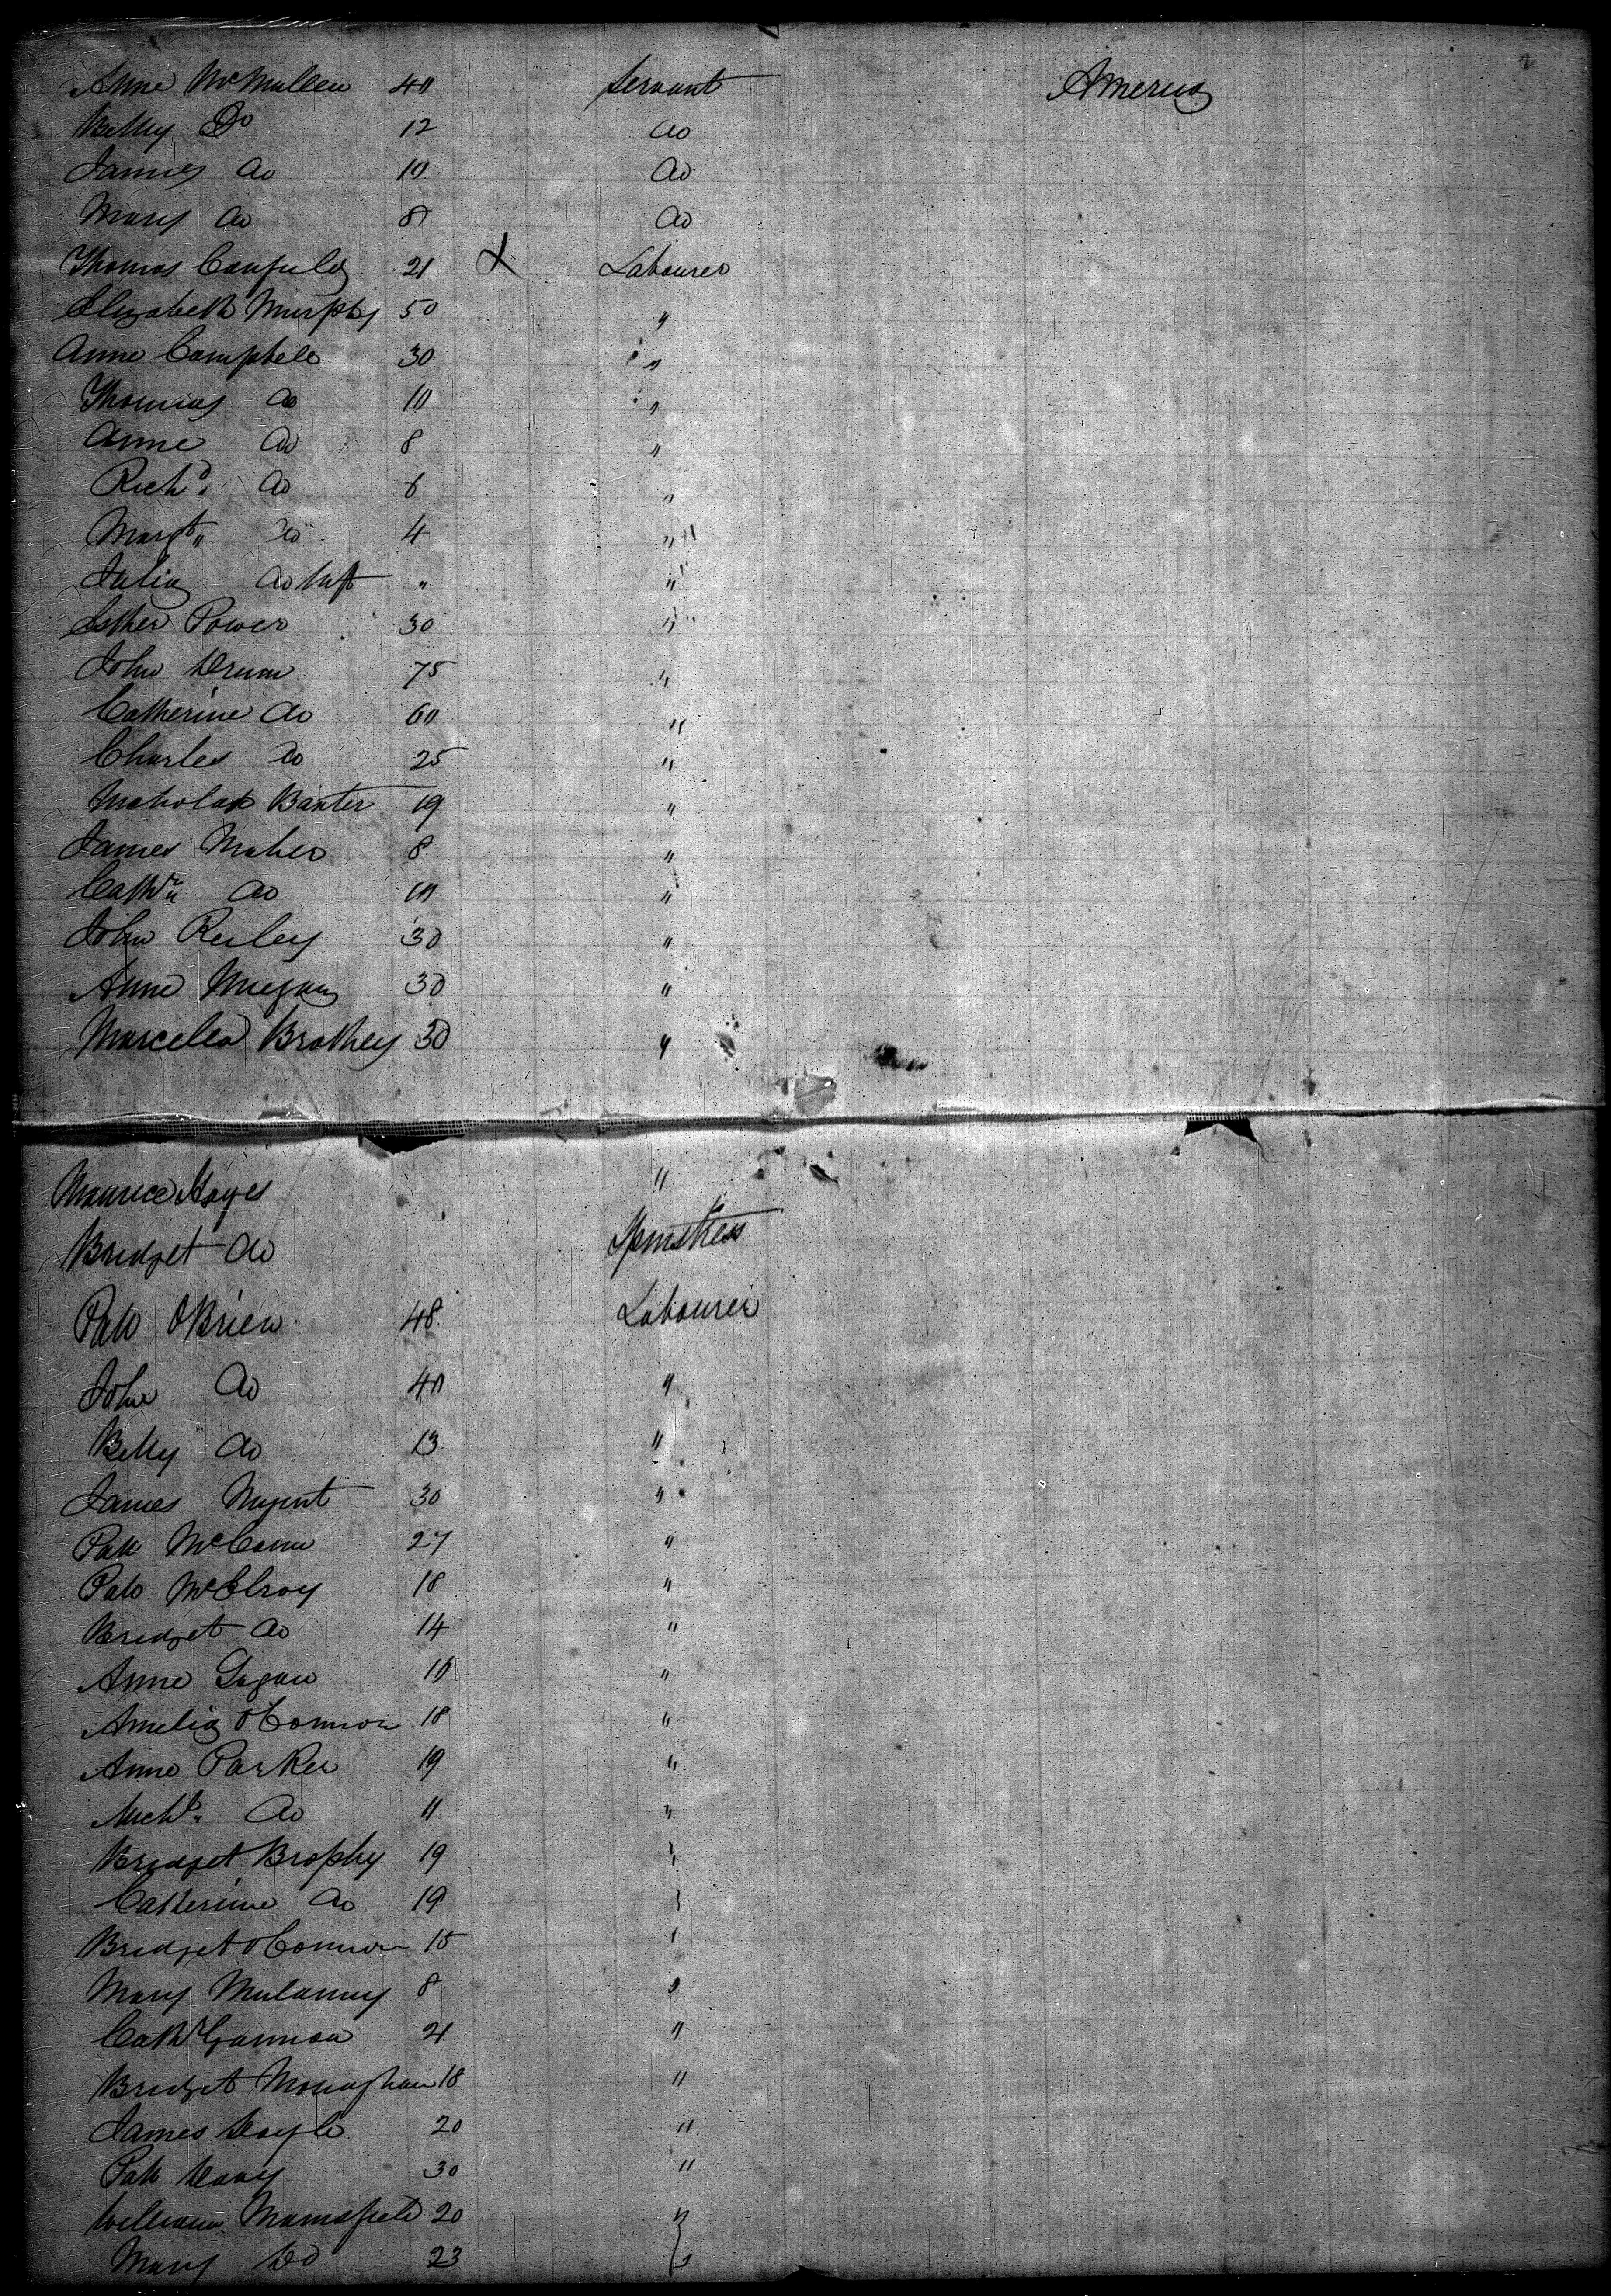 Anne McMullen 40 Servant America
Betty Do 12 do
James do 10 do
Mary do 8 do
Thomas Canfield 21 X Labourer
Elizabeth Murphy 50 "
Anne Campbele 30 "
Thomas do 10 "
Anne do 8 "
Richd. do 6 "
Margt. do 4 "
Julia do Inft " "
Esther Power 30 "
John Drum 75 "
Catherine do 60 "
Charles do 25 "
Nicholas Baxter 19 "
James Maher 8 "
Cathn do 10 "
John Reiley 30 "
Anne 30 "
Marcella 30 "
Maurice Hayes "
Bridget do Spinstress
Patk O'Brien 48 Labourer
John do 40 "
Betty do 13 "
James Nugent 30 "
Patk McCann 27 "
Patk McElroy 18 "
Bridget do 14 "
Anne Logan "
Amelia O'Connor 18 "
Anne Parker 19 "
Michl. do 11 "
Bridget Brophy 19 "
Catherine do 19 "
Bridget O'Connor 15 "
Mary Mulanny 8 "
Cath Gannon 21 "
Bridget Monaghan 18 "
James Doyle 20 "
Patk 30 "
William Mansfield 20 "
Mary Do 23 "